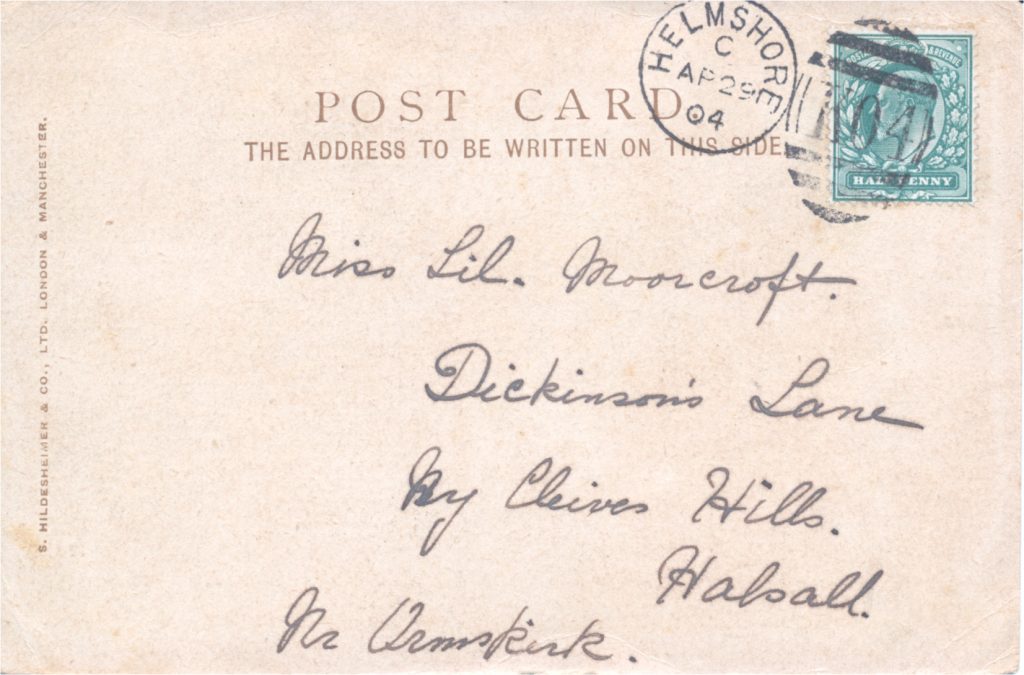 HELMSHORE
C
AP 29
04
POSTAGE & REVENUE
N04
HALFPENNY
POST CARD
THE ADDRESS TO BE WRITTEN ON THIS SIDE.
S. HILDESHEIMER & CO., LTD. LONDON & MANCHESTER.
Miss Lil. Moorcroft.
Dickinson's Lane
Ny Cleives Hills.
Halsall.
Nr Ormskirk.